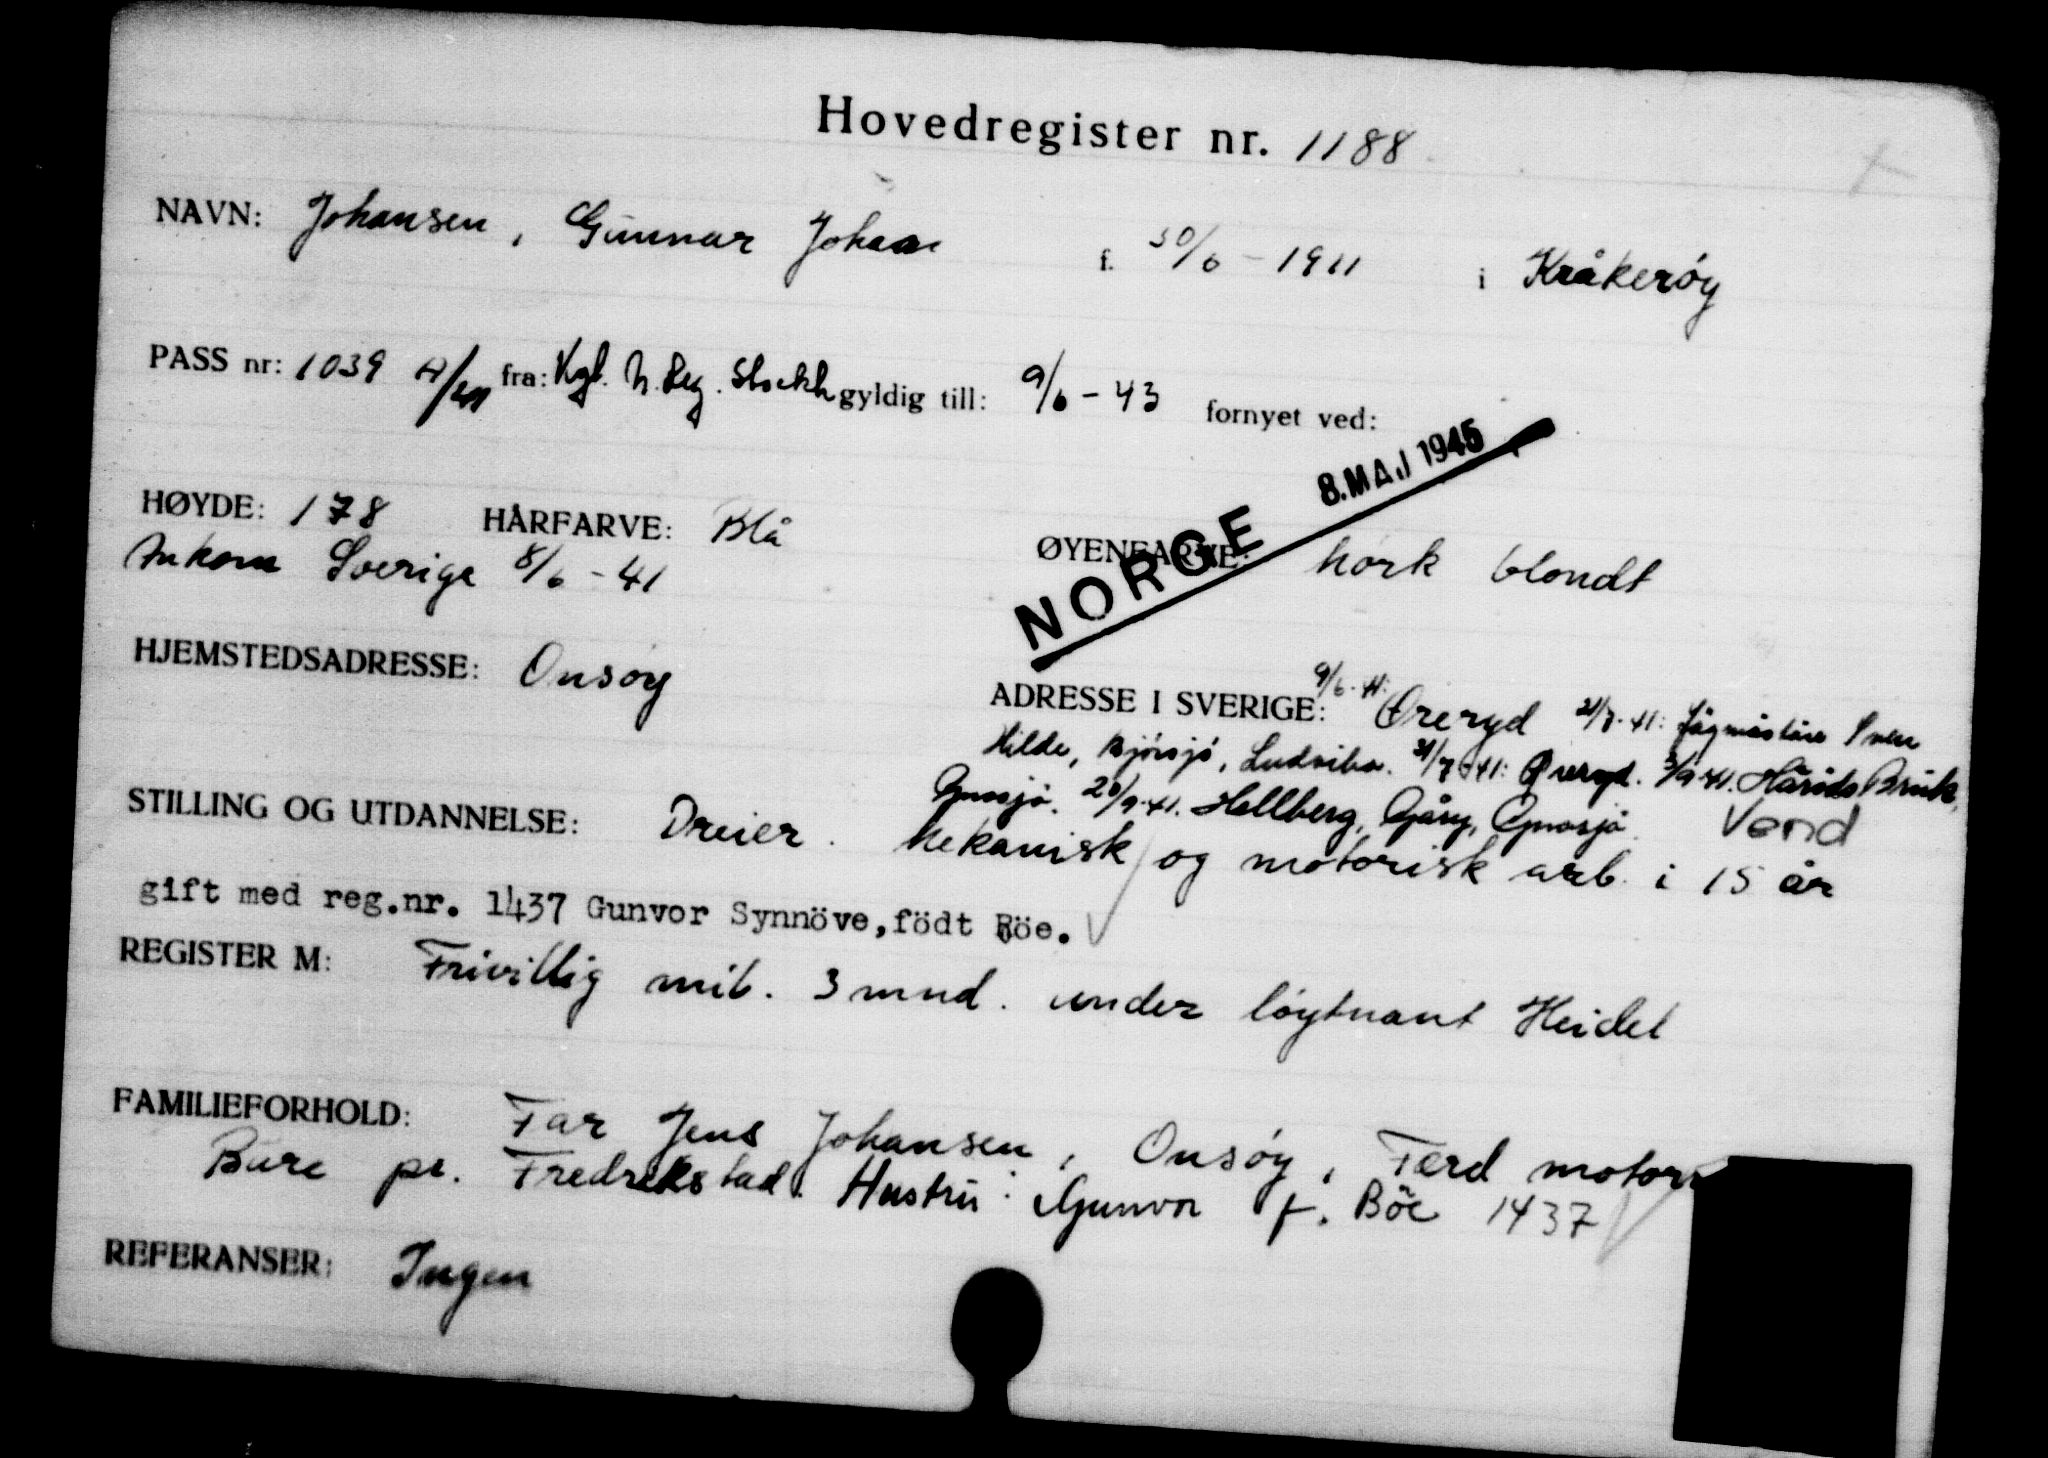 Hovedregister nr. 1188
NAVN: Johansen, Gunnar Johan f. 30/6 - 1911 i Kråkerøy
PASS nr: 1039 A/41 fra: Kgl. N. Leg. Stockh gyldig till: 9/6 - 43 fornyet ved:
NORGE 8. MAJ 1945
HØYDE: 178 HÅRFARVE: Blå ØYENFARVE: mørk blondt
Ankom Sverige 8/6 - 41
HJEMSTEDSADRESSE: Onsøy
ADRESSE I SVERIGE: 9/6-41: Øreryd 21/7-41: Jägmästare Sven
Hilde, Björsjö, Ludvika. 31/7-41: Øreryd. 3/9-41. Hårids Bruk,
Gnosjö. 20/9-41. Hellberg, Gåry, Gnosjö. Vend
STILLING OG UTDANNELSE: Dreier. Mekanisk og motorisk arb. i 15 år
gift med reg.nr. 1437 Gunvor Synnöve, födt Böe.
REGISTER M: Frivillig mil. 3 mnd. under løytnant Heidel
FAMILIEFORHOLD: Far Jens Johansen, Onsøy, Færd motor
Bure pr. Fredrikstad. Hustru: Gunvor f. Böe 1437
REFERANSER: Ingen